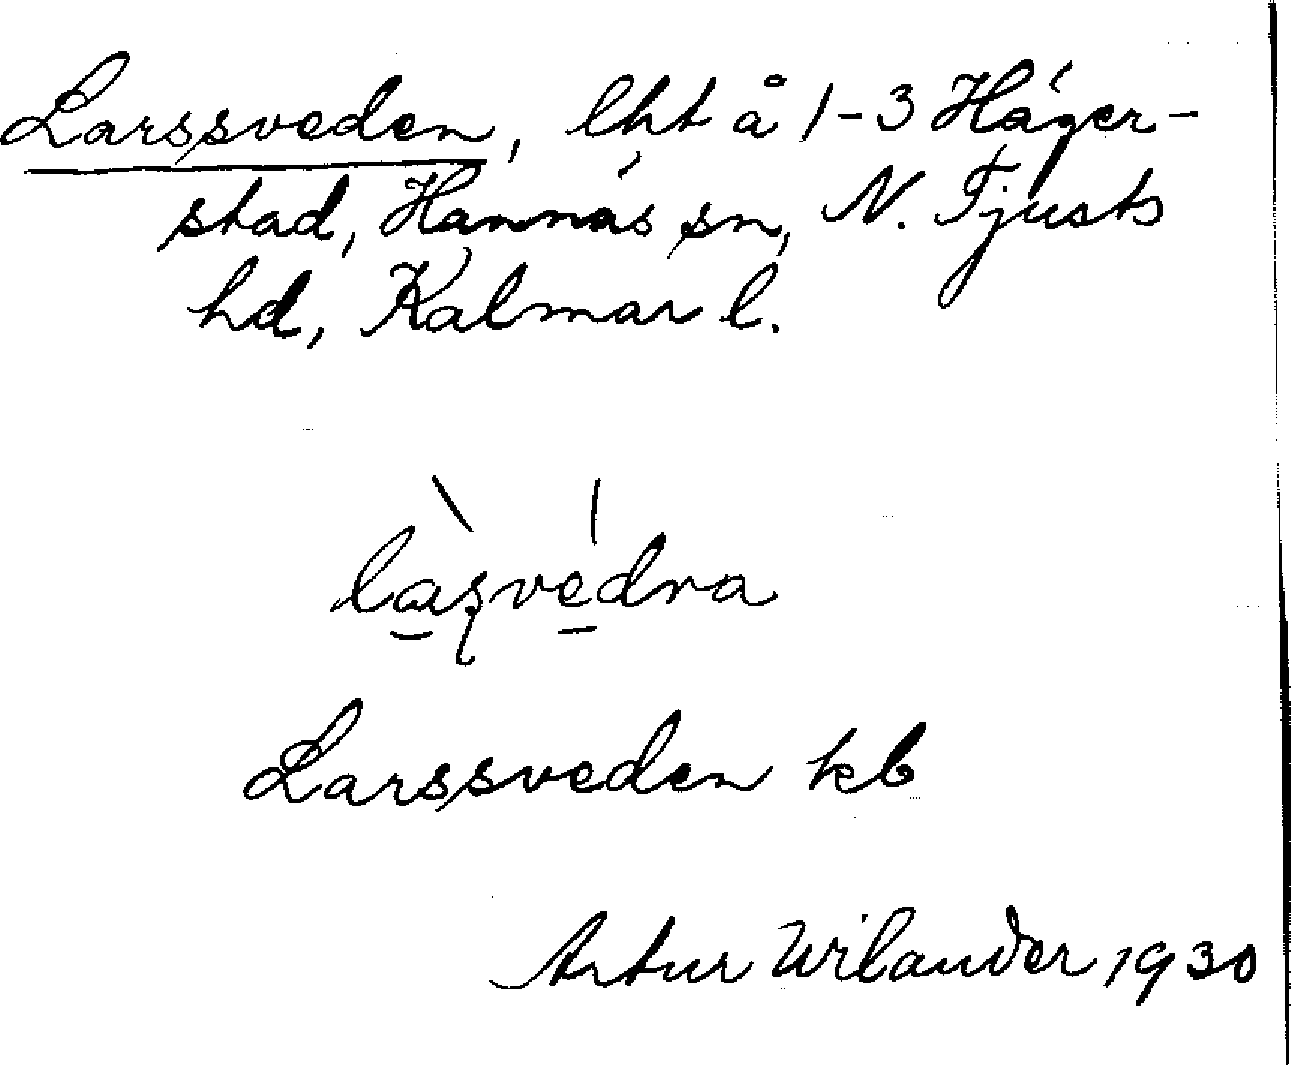 Larssveden, lht å 1-3 Häger-
stad, Hannäs sn, N. Tjusts
hd, Kalmar l.
là̱ʂvé̱dna
Larssveden kb
Artur Wilander 1930